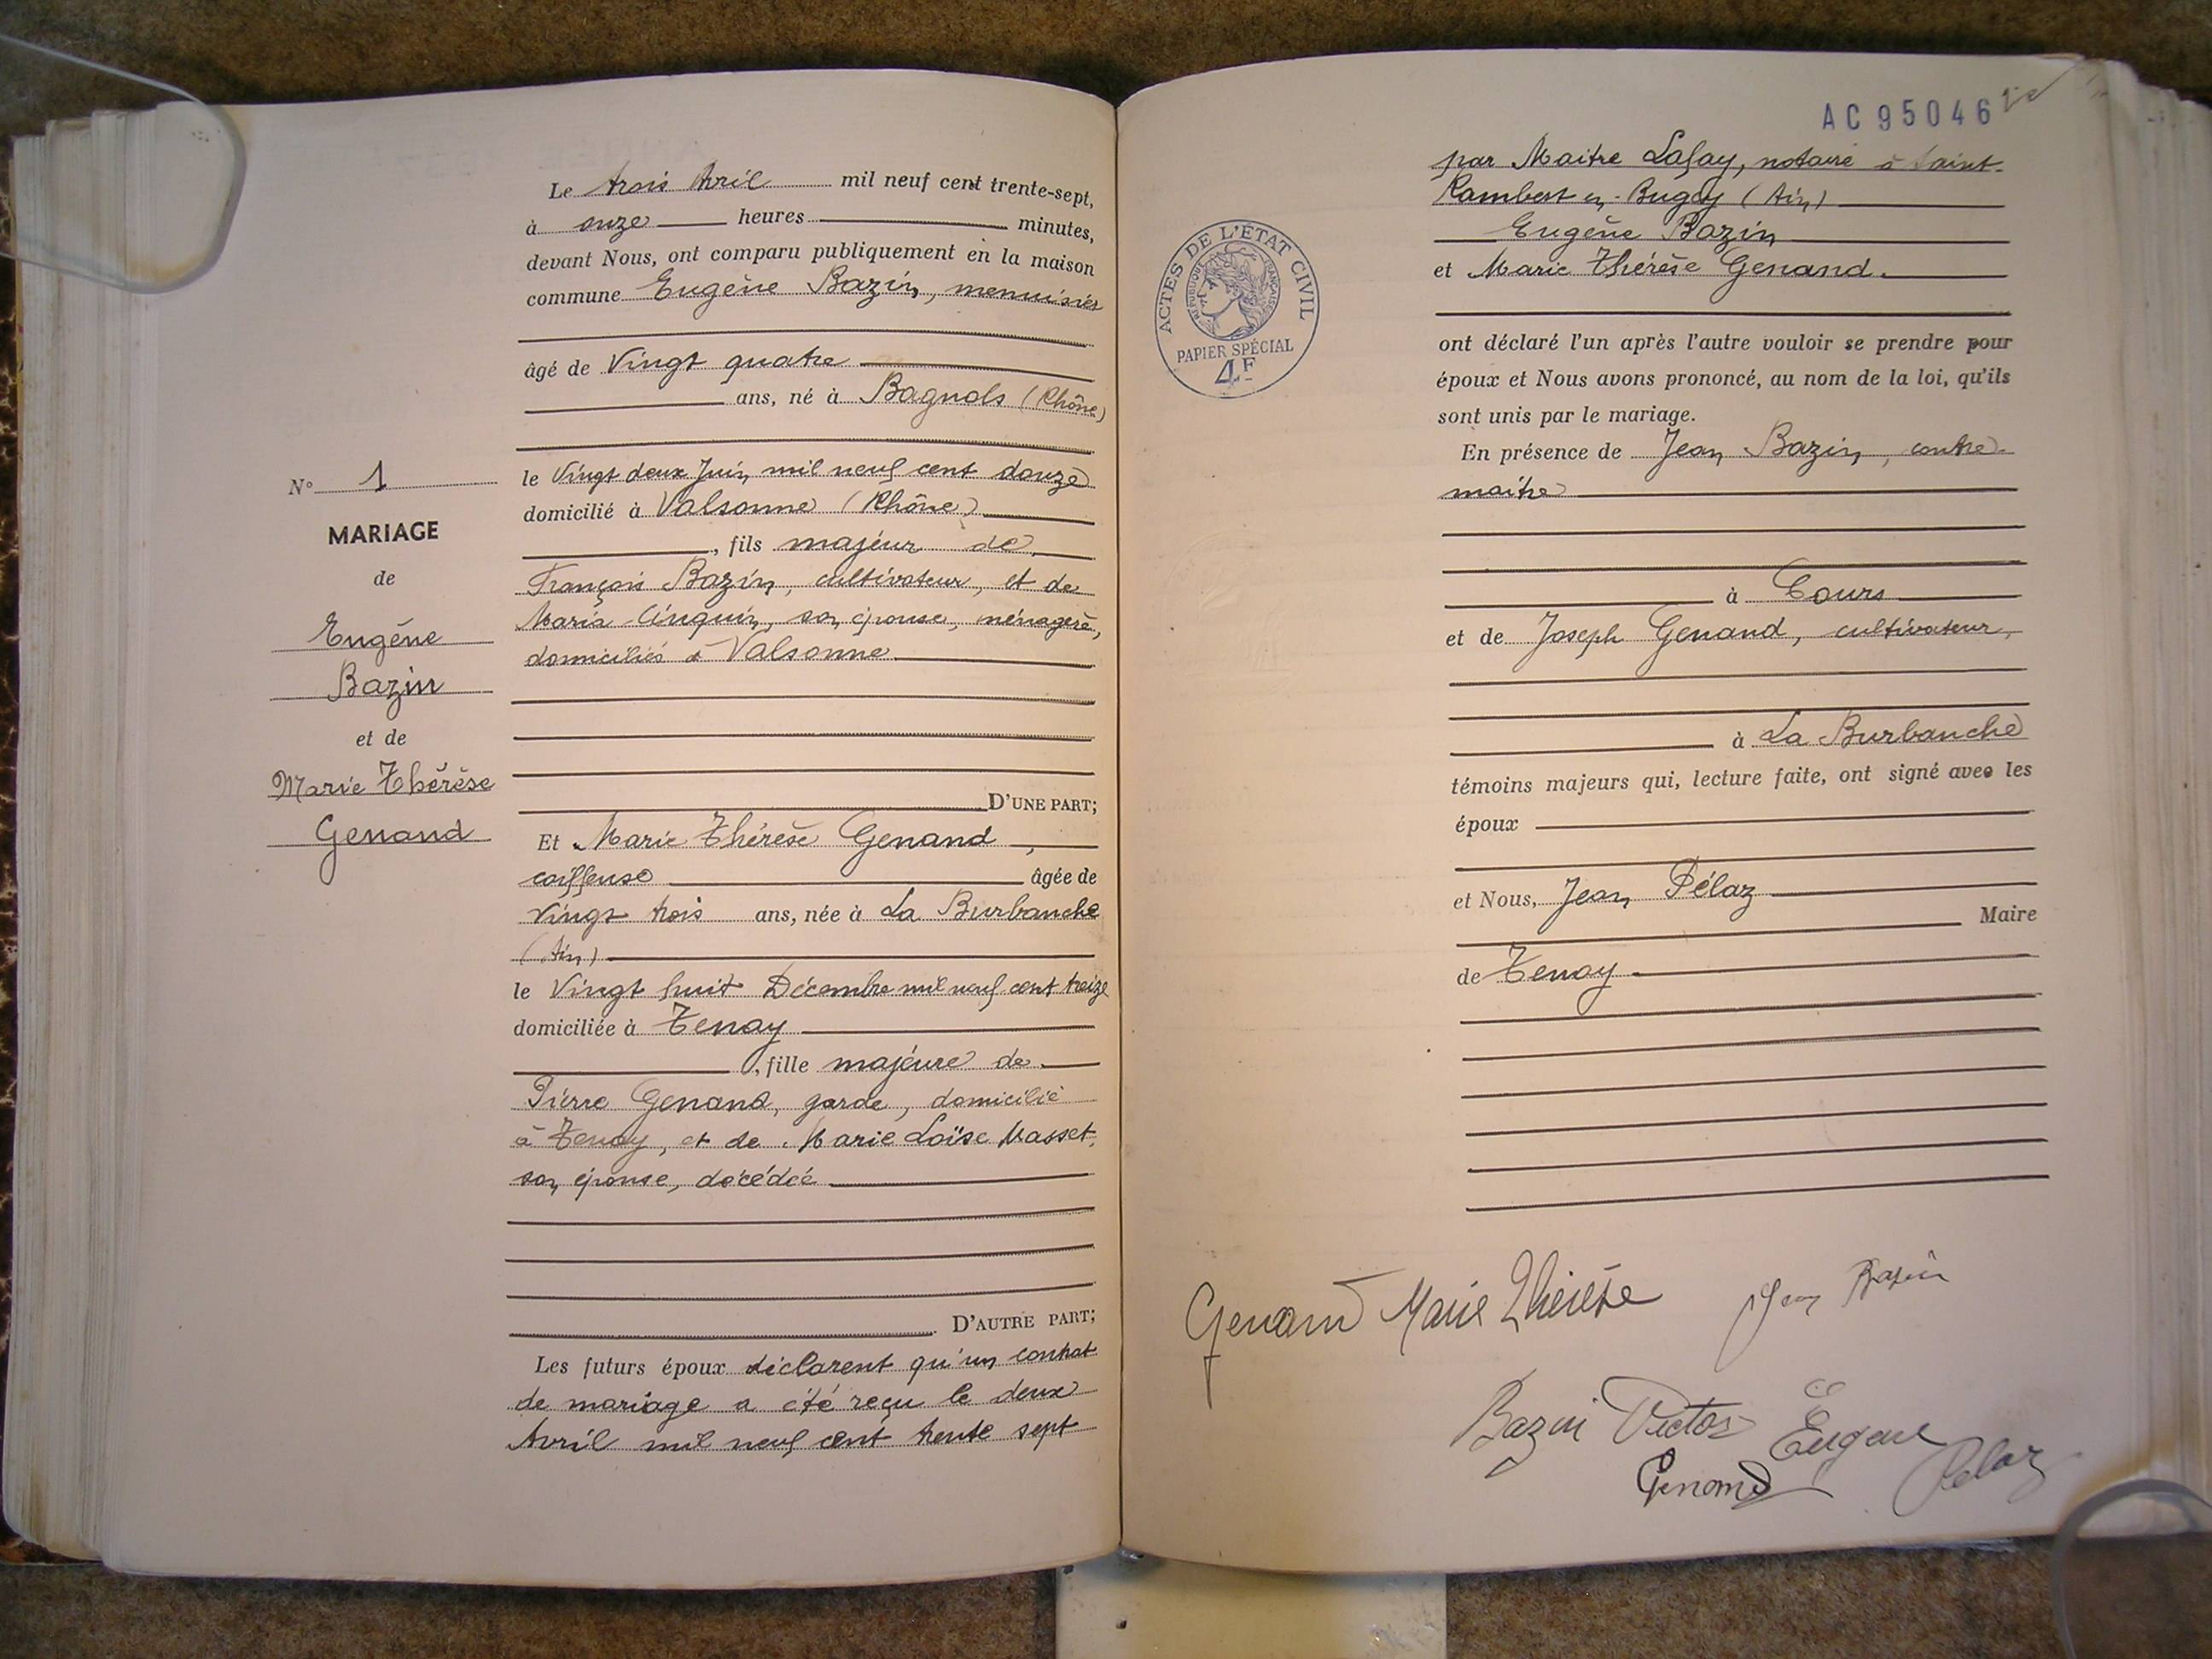 N° 1
MARIAGE
de
Eugène
Bazin
et de
Marie Thérèse
Genand
Le trois Avril mil neuf cent trente-sept,
à onze heures minutes,
devant Nous, ont comparu publiquement en la maison
commune Eugène Bazin, menuisier
âgé de Vingt quatre
ans, né à Bagnols (Rhône)
le Vingt deux Juin mil neuf cent douze
domicilié à Valsonne (Rhône)
, fils majeur de
François Bazin, cultivateur, et de
Maria Cinquin, son épouse, ménagère,
domiciliés à Valsonne
D'UNE PART;
Et Marie Thérèse Genand,
coiffeuse âgée de
Vingt trois ans, née à La Burbanche
(Ain)
le Vingt huit Décembre mil neuf cent treize
domiciliée à Tenay
, fille majeure de
Pierre Genand, garde, domicilié
à Tenay, et de Marie Loïse Masset,
son épouse, décédée
D'AUTRE PART;
Les futurs époux déclarent qu'un contrat
de mariage a été reçu le deux
Avril mil neuf cent trente sept
AC 95046
par Maitre Lafay, notaire à Saint-
Rambert en-Bugey (Ain)
Eugène Bazin
et Marie Thérèse Genand.
ACTES DE L'ÉTAT CIVIL
RÉPUBLIQUE FRANÇAISE
PAPIER SPÉCIAL
4F
ont déclaré l'un après l'autre vouloir se prendre pour
époux et Nous avons prononcé, au nom de la loi, qu'ils
sont unis par le mariage.
En présence de Jean Bazin, contre-
maitre
à Cours
et de Joseph Genand, cultivateur,
à La Burbanche
témoins majeurs qui, lecture faite, ont signé avec les
époux
et Nous, Jean Pélaz
Maire
de Tenay.
Genand Marie Thérèse Jean Bazin
Bazin Victor Eugene
Genand Pelaz